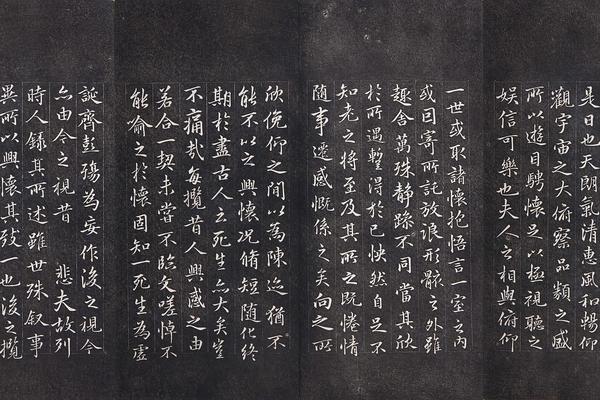 是日也天朗氣清惠風和暢仰
觀宇宙之大俯察品類之盛
所以遊目騁懷足以極視聽之
娛信可樂也夫人之相與俯仰
一世或取諸懷抱悟言一室之內
或因寄所託放浪形骸之外雖
趣舍萬殊靜躁不同當其欣
於所遇暫得於己怏然自足不
知老之將至及其所之既倦情
隨事遷感慨係之矣向之所
欣俛仰之間以為陳迹猶不
能不以之興懷況脩短隨化終
期於盡古人云死生亦大矣豈
不痛哉每攬昔人興感之由
若合一契未嘗不臨文嗟悼不
能喻之於懷固知一死生為虛
誕齊彭殤為妄作後之視今
亦由今之視昔 悲夫故列
時人錄其所述雖世殊叙事
異所以興懷其致一也後之攬